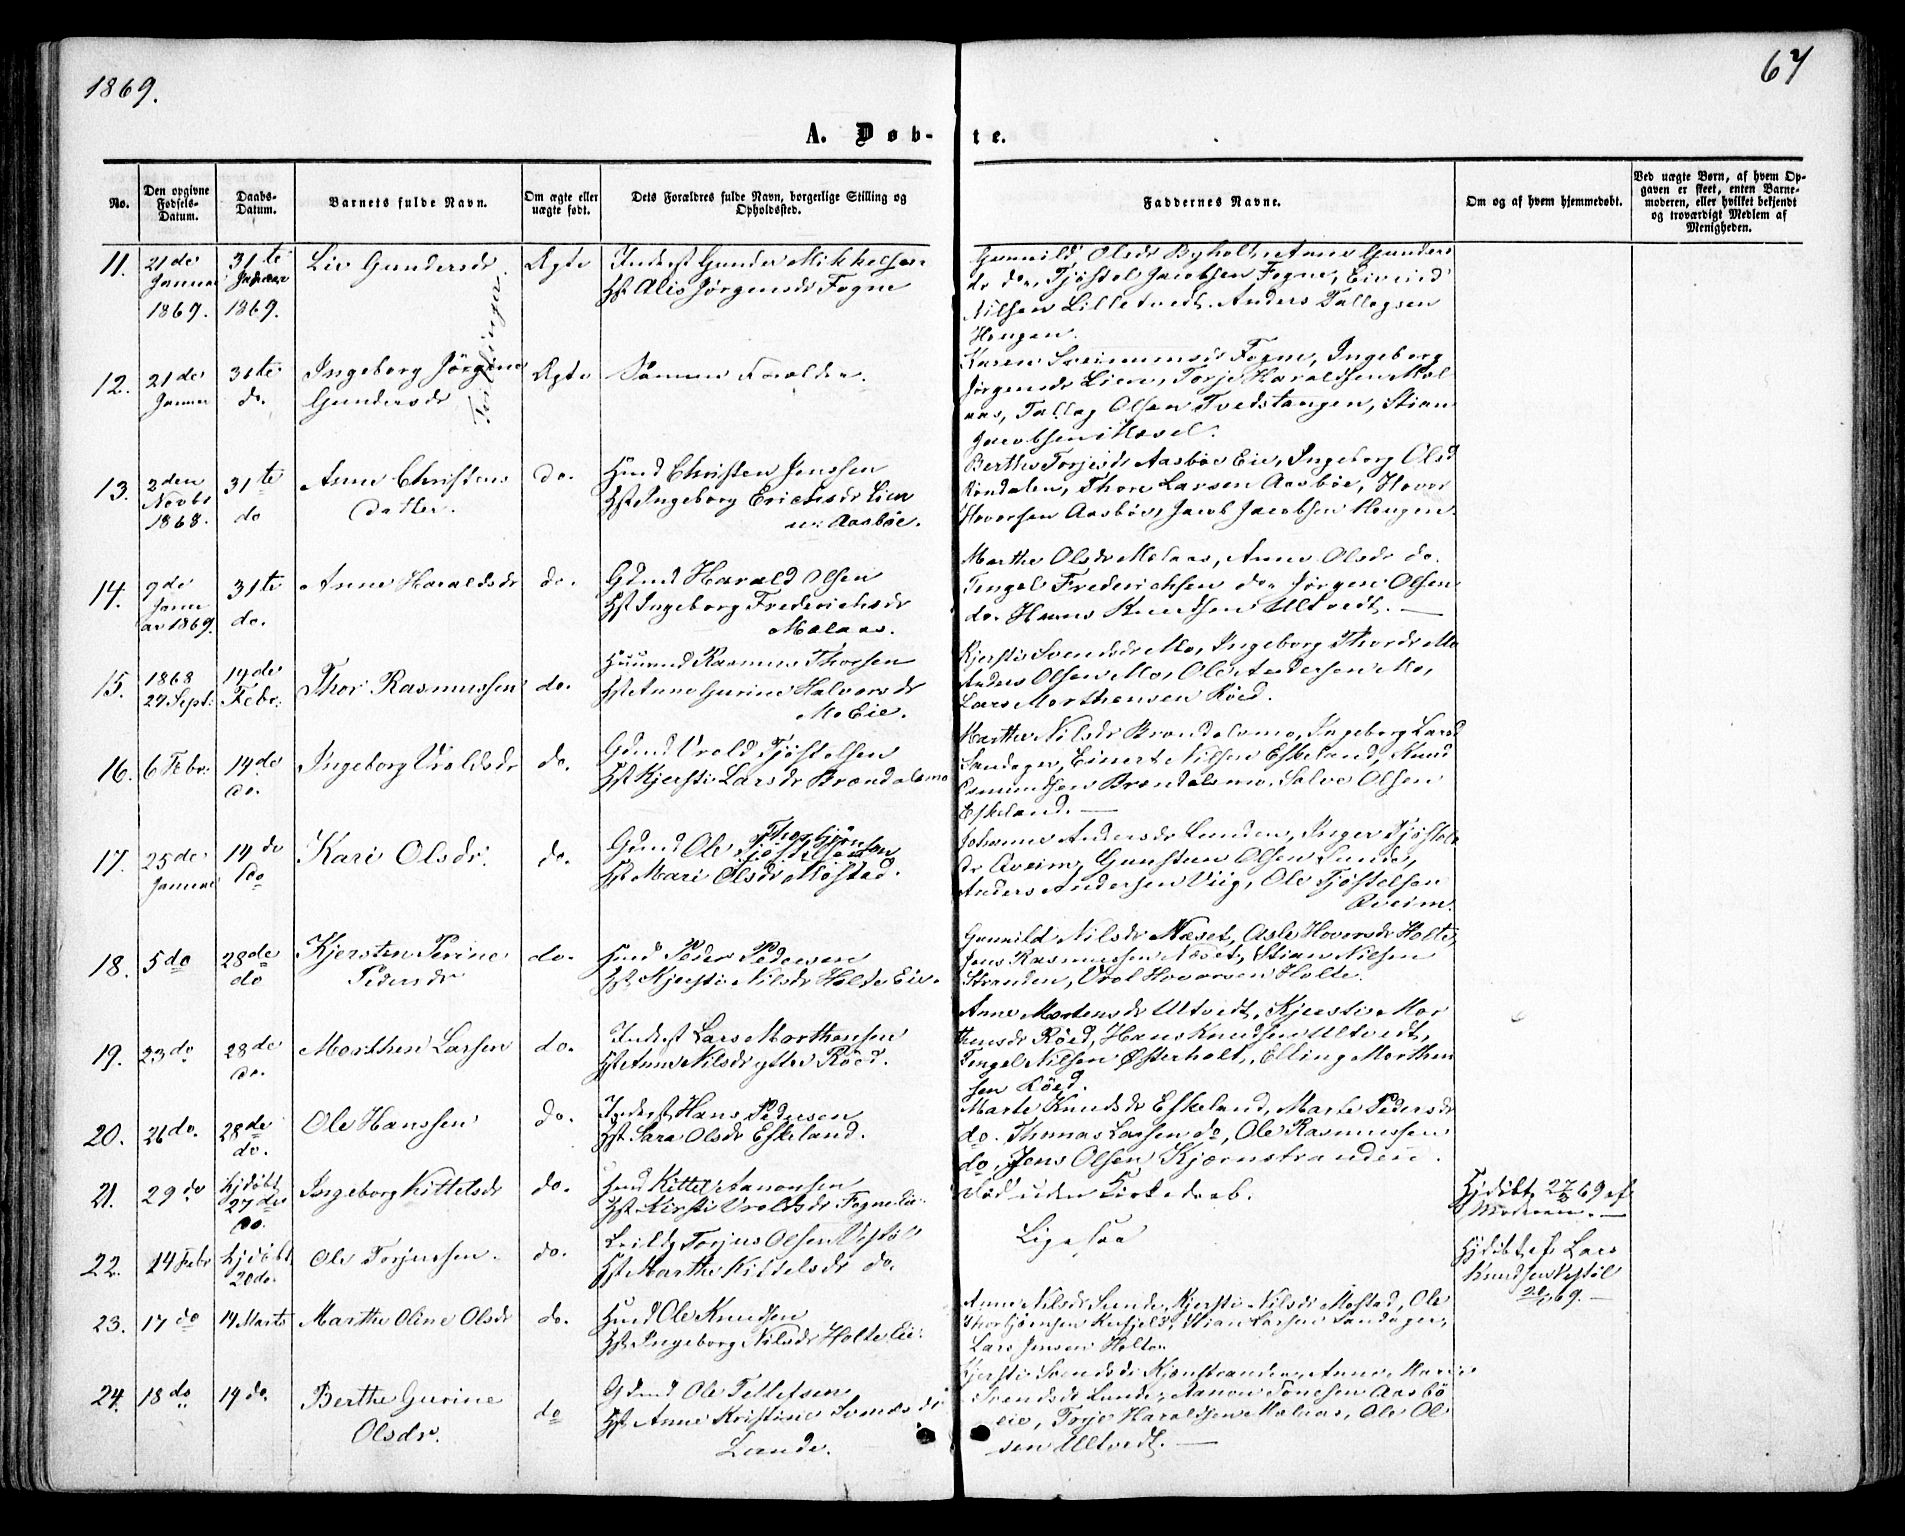 1869.
67
A. Døb-
te.
No.
Den opgivne Fødsels-Datum.
Daabs-Datum.
Barnets fulde Navn.
Om ægte eller uægte født.
Dets Forældres fulde Navn, borgerlige Stilling og Opholdssted.
Faddernes Navne.
Om og af hvem hjemmedøbt.
Ved uægte Børn, af hvem Opgaven er skeet, enten Barnemoderen, eller hvilket bekjendt og troværdigt Medlem af Menigheden.
11.
21de
Januar
1869.
31te
Januar
1869.
Liv Gundersdr
Ægte
Inderst Gunder Mikkelsen
Hst Alis Jørgensdr Fogne
Gunnild Olsdr Byholt, Anne Gunders
dr do, Tjøstol Jacobsen Fogne, Eivind
Nilsen Lilletvedt, Anders Tallagsen
Hougen.
Tvillinger
12.
21de
Januar
31te
do.
Ingeborg Jørgine
Gundersdr
Ægte
Samme Forældre.
Karen Fogne, Ingeborg
Jørgensdr Lien, Torje Haraldsen Mol
aas, Tallag Olsen Tvedstangen, Stian
Jacobsen
13.
2den
Novbr
1868.
31te
do
Anne Christens
datter.
do.
Hmd Christen Jenssen
Hst Ingeborg Erichsdr Lien
Aasbøe.
Berthe Torjesdr Aasbøe Eie, Ingeborg Olsd
Røndalen, Thore Larsen Aasbøe, Hovor
Hovorsen Aasbøe, Jacob Jacobsen Hougen.
14.
9de
Janu
ar 1869.
31te
do.
Anne Haraldsdr
do.
Gdmd Harald Olsen
Hst Ingeborg Frederichsdr
Molaas.
Marthe Olsdr Molaas, Anne Olsdr do.
Tengel Frederichsen do, Jørgen Olsen
do. Hans Knudsen Ultvedt. —
15.
1868
27 Sept:
14de
Febr:
Thor Rasmussen
do.
Huusmd Rasmus Thorsen
Hst Anne Gurine Halvorsdr
Mo Eie.
Kjersti Svendsdr Mo, Ingeborg Thordr Mo
Anders Olsen Mo, Ole Andersen Mo,
Lars Morthensen Røed.
16.
6 Febr:
14de
do.
Ingeborg Vroldsdr
do.
Gdmd Vrold Tjøstolsen
Hst Kjersti Larsdr Brændalsmo
Marthe Nilsdr Brændalsmo, Ingeborg Larsd
Sandager, Einert Nilsen Eskeland, Knud
Osmundsen Brændalsmo, Salve Olsen
Eskeland. —
17.
25de
Januar
14do
do
Kari Olsdr.
do.
Thorbjørnsen
Gdmd Ole Tjøstelsen
Hst Mari Olsdr Møstad.
Johanne Andersdr Lunden, Inger Tjøstels
dr Aveim, Gunstan Olsen Sunde,
Anders Andersen Viig, Ole Tjøstelsen
Aveim.
18.
5do
28de
do
Kjersten Perine
Pedersdr
do.
Hmd Peder Pedersen
Hst Kjersti Nilsdr Holte Eie.
Gunnild Nilsdr Næset, Asle Hovorsdr Holte,
Jens Rasmussen Næset, Stian Nilsen
Stranden, Vrol Hovorsen Holte.
19.
23do
28de
do.
Morthen Larsen
do.
Inderst Lars Morthensen
Hst Anne Nilsdr ytter Røed.
Anne Mortensdr Ultvedt, Kjersti Mor
thensdr Røed, Hans Knudsen Ultvedt,
Tengel Nilsen Østerholt, Elling Morthen
sen Røed.
20.
26do.
28de
do.
Ole Hanssen
do.
Inderst Hans Pedersen
Hst Sara Olsdr Eskeland.
Marte Knudsdr Eskeland, Marte Pedersdr
do. Thomas Larsen do, Ole Rasmussen
do, Jens Olsen Kjærnstranden.
21.
29do
hjdøbt
27de
do.
Ingeborg Kittelsdr
do.
Hmd Kittel Aanonsen
Hst Kirsti Vroldsdr Fogne Eie
død uden Kirkedaab.
Hjdøbt 27/3 69 af
Moderen. —
22.
14 Febr
hjdøbt
20do.
Ole Torjussen.
do.
Torjus Olsen Vestøl
Hst Marthe Kittelsdr do.
Ligesaa
Hjdøbt af Lars
Knudsen Vestøl
20/2 69. —
23.
17do
14 Marts
Marthe Oline Olsdr
do.
Hmd Ole Knudsen
Hst Ingeborg Nilsdr Holte Eie
Anne Nilsdr Sunde, Kjersti Nilsdr Møstad, Ole
Thorbjørnsen Stian Larsen Sandager,
Lars Jensen Holte.
24.
18do
14do.
Berthe Gurine
Olsdr.
do
Gdmd Ole Tellefsen
Hst Anne Kristine Svendsdr
Lunde.
Kjersti Svendsdr Kjærnstranden, Anne Marie
Svendsdr Lunde, Aanon Tønesen Aasbø
eie, Torje Haraldsen Molaas, Ole Ol
sen Ultvedt. —